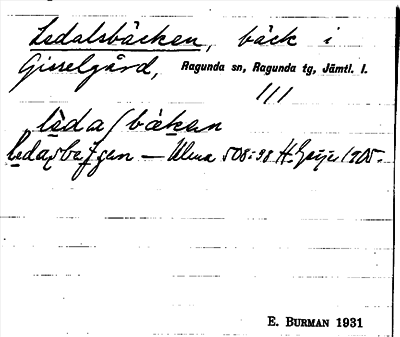 Ledalsbäcken, bäck i
Gisselgård, Ragunda sn, Ragunda tg, Jämtl. l.
111
lèda/bäken
— Ulma 508:98 H. Geijer 1905.
E. BURMAN 1931